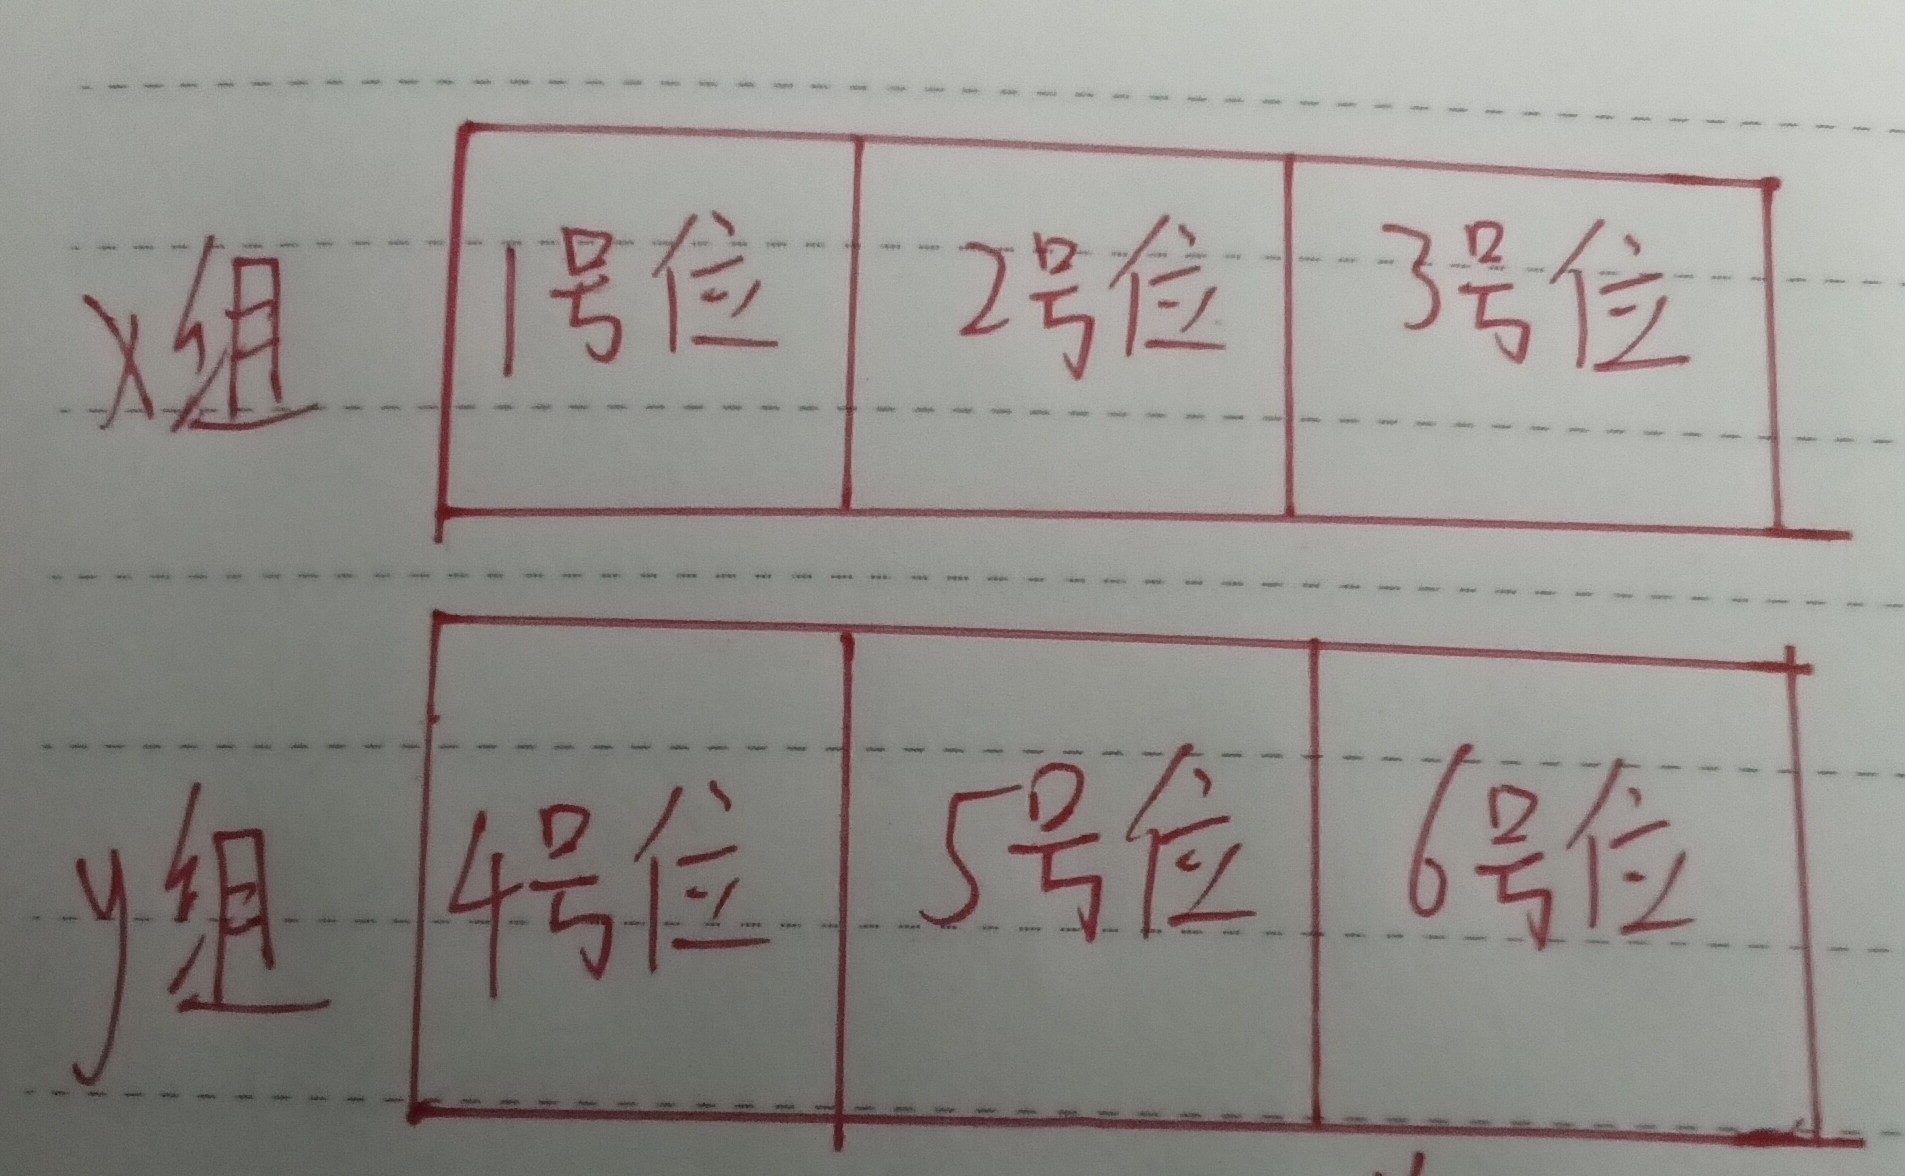 x组 1号位 2号位 3号位
y组 4号位 5号位 6号位